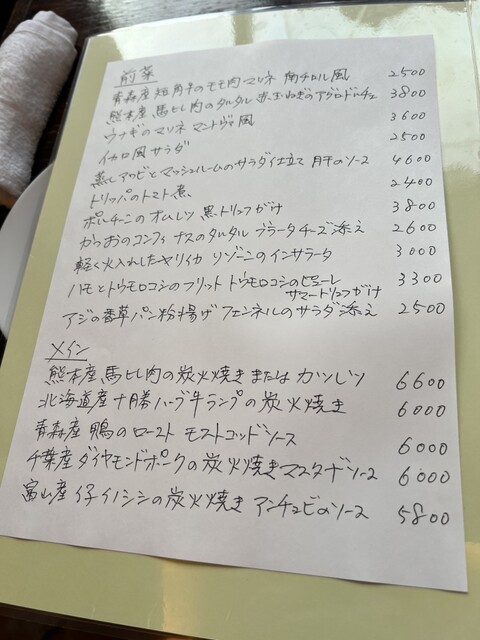 前菜
青森産 短角牛のモモ肉マリネ 南チロル風 2500
熊本産 馬ヒレ肉のタルタル 赤玉ねぎのアグロドルチェ 3800
ウナギのマリネ マントヴァ風 3600
イカロ風サラダ 2500
蒸しアワビとマッシュルームのサラダ仕立て 肝のソース 4600
トリッパのトマト煮 2400
ポルチーニのオムレツ 黒トリュフがけ 3800
かつおのコンフィ ナスのタルタル ブラータチーズ添え 2600
軽く火入れしたヤリイカ リゾーニのインサラータ 3000
ハモとトウモロコシのフリット トウモロコシのピューレ 3300
サマートリュフがけ
アジの香草パン粉揚げ フェンネルのサラダ添え 2500
メイン
熊本産 馬ヒレ肉の炭火焼き または カツレツ 6600
北海道産 十勝ハーブ牛ランプの炭火焼き 6000
青森産 鴨のロースト モストコットソース 6000
千葉産 ダイヤモンドポークの炭火焼き マスタードソース 6000
富山産 仔イノシシの炭火焼き アンチョビのソース 5800